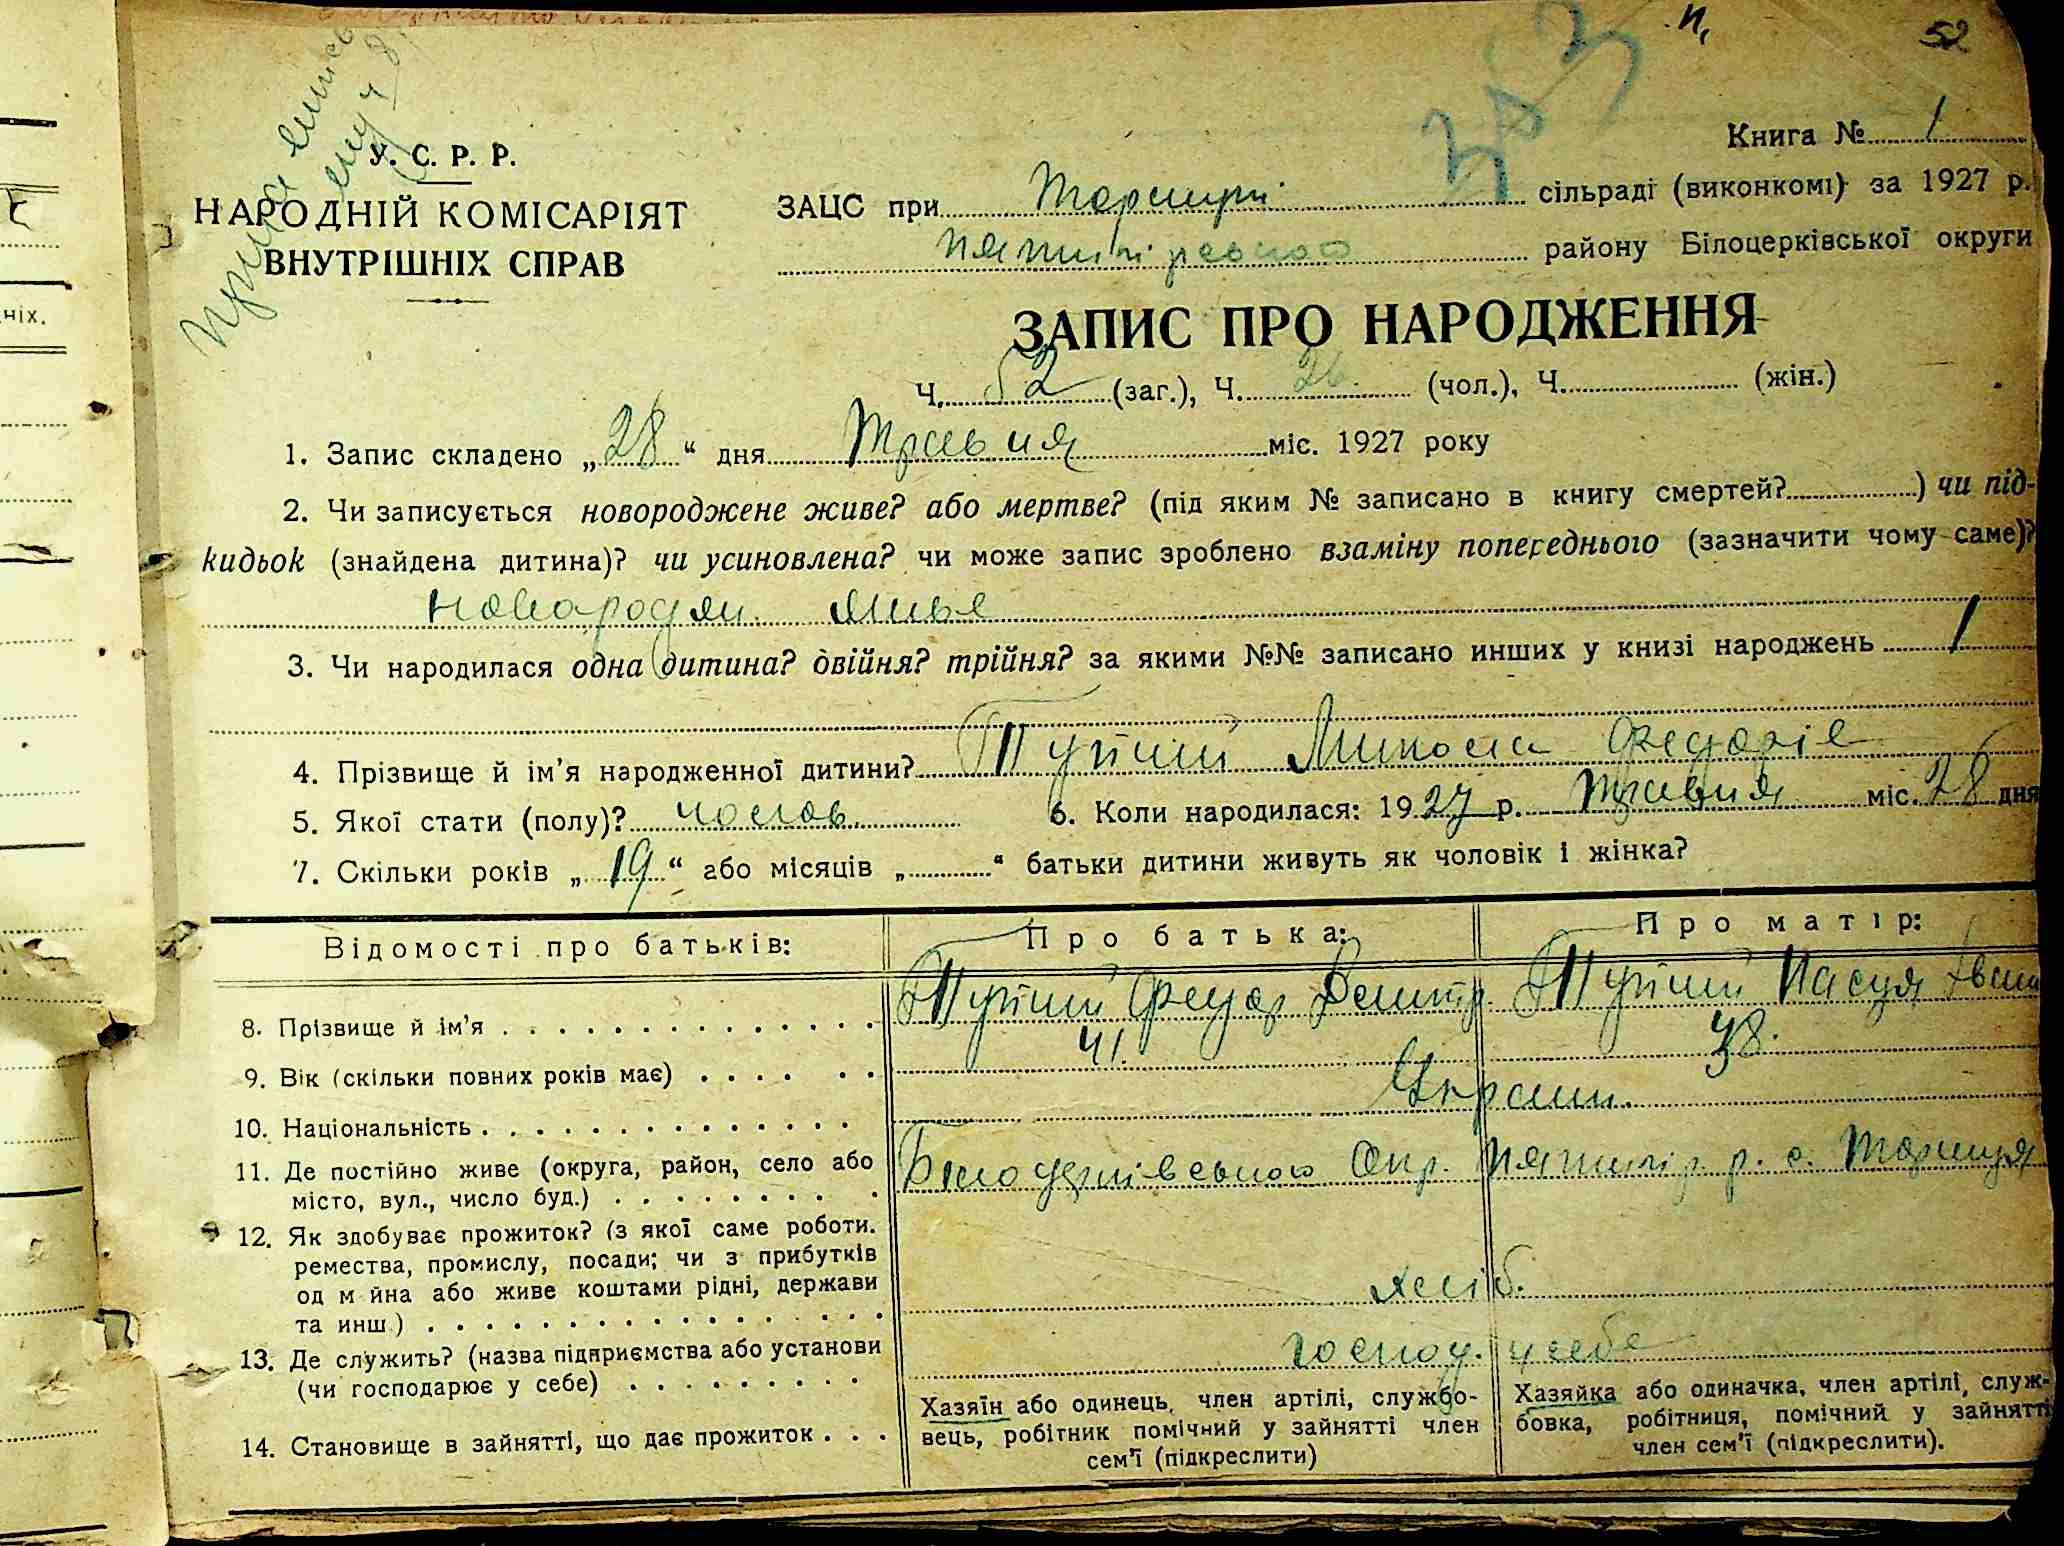 52
Книга № 1
У. С. Р. Р.
НАРОДНІЙ КОМІСАРІЯТ
ВНУТРІШНІХ СПРАВ
ЗАЦС при Торчиці сільраді (виконкомі) за 1927 р.
Пятигірського району Білоцерківської округи
ЗАПИС ПРО НАРОДЖЕННЯ
Ч. 52 (заг.), Ч. 26. (чол.), Ч. (жін.)
1. Запис складено „28“ дня Травня міс. 1927 року
2. Чи записується новороджене живе? або мертве? (під яким № записано в книгу смертей? ) чи під-
кидьок (знайдена дитина)? чи усиновлена? чи може запис зроблено взаміну попереднього (зазначити чому саме)?
3. Чи народилася одна дитина? двійня? трійня? за якими №№ записано инших у книзі народжень 1
4. Прізвище й ім’я народженної дитини? Микола
5. Якої стати (полу)? чолов. 6. Коли народилася: 1927 р. Травня міс. 28 дня
7. Скільки років „19“ або місяців „ “ батьки дитини живуть як чоловік і жінка?
Відомості про батьків: Про батька: Про матір:
8. Прізвище й ім’я
9. Вік (скільки повних років має) 41. 38.
10. Національність Украин.
11. Де постійно живе (округа, район, село або
місто, вул., число буд.) Білоцерківського Окр. Пятигір. р. с. Торчиця
12. Як здобуває прожиток? (з якої саме роботи.
ремества, промислу, посади; чи з прибутків
од м йна або живе коштами рідні, держави
та инш.) хліб.
13. Де служить? (назва підприємства або установи
(чи господарює у себе) господ. у себе
14. Становище в зайнятті, що дає прожиток
Хазяїн або одинець, член артілі, службо-
вець, робітник помічний у зайнятті член
сем’ї (підкреслити)
Хазяйка або одиначка, член артілі, служ-
бовка, робітниця, помічний у зайнятті
член сем’ї (підкреслити).